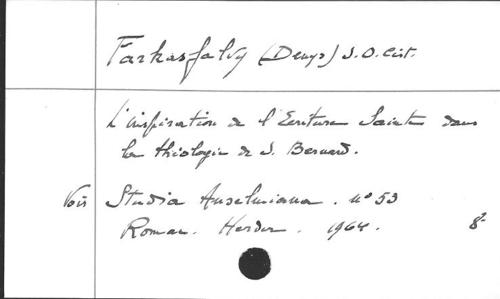 Farkasfalvy (Denys) S. O. Cist.
L'inspiration de l'Ecriture Sainte dans
la théologie de S. Bernard.
Voir Studia Anselmiana. n° 53
Romae. Herder. 1964. 8°